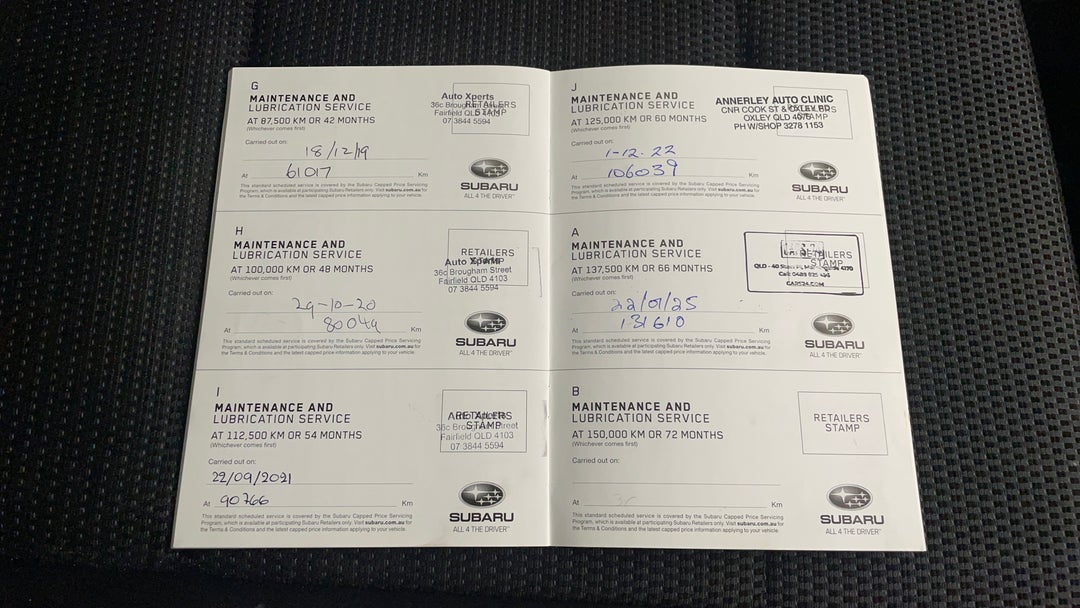 G
MAINTENANCE AND
LUBRICATION SERVICE
AT 87,500 KM OR 42 MONTHS
(Whichever comes first)
Auto Xperts
36c Brougham Street
Fairfield QLD 4103
07 3844 5594
RETAILERS
STAMP
Carried out on:
18/12/19
At 61017 Km
This standard scheduled service is covered by the Subaru Capped Price Servicing
Program, which is available at participating Subaru Retailers only. Visit subaru.com.au for
the Terms & Conditions and the latest capped price information applying to your vehicle.
SUBARU
ALL 4 THE DRIVER
H
MAINTENANCE AND
LUBRICATION SERVICE
AT 100,000 KM OR 48 MONTHS
(Whichever comes first)
RETAILERS
STAMP
Auto Xperts
36c Brougham Street
Fairfield QLD 4103
07 3844 5594
Carried out on:
29-10-20
At 80049 Km
This standard scheduled service is covered by the Subaru Capped Price Servicing
Program, which is available at participating Subaru Retailers only. Visit subaru.com.au for
the Terms & Conditions and the latest capped price information applying to your vehicle.
SUBARU
ALL 4 THE DRIVER
I
MAINTENANCE AND
LUBRICATION SERVICE
AT 112,500 KM OR 54 MONTHS
(Whichever comes first)
RETAILERS
STAMP
Auto Xperts
36c Brougham Street
Fairfield QLD 4103
07 3844 5594
Carried out on:
22/09/2021
At 90766 Km
This standard scheduled service is covered by the Subaru Capped Price Servicing
Program, which is available at participating Subaru Retailers only. Visit subaru.com.au for
the Terms & Conditions and the latest capped price information applying to your vehicle.
SUBARU
ALL 4 THE DRIVER
J
MAINTENANCE AND
LUBRICATION SERVICE
AT 125,000 KM OR 60 MONTHS
(Whichever comes first)
ANNERLEY AUTO CLINIC
CNR COOK ST & OXLEY RD
OXLEY QLD 4075
PH W/SHOP 3278 1153
RETAILERS
STAMP
Carried out on:
1-12-22
At 106039 Km
This standard scheduled service is covered by the Subaru Capped Price Servicing
Program, which is available at participating Subaru Retailers only. Visit subaru.com.au for
the Terms & Conditions and the latest capped price information applying to your vehicle.
SUBARU
ALL 4 THE DRIVER
A
MAINTENANCE AND
LUBRICATION SERVICE
AT 137,500 KM OR 66 MONTHS
(Whichever comes first)
RETAILERS
STAMP
QLD - 40
4170
Carried out on:
22/01/25
At 131610 Km
This standard scheduled service is covered by the Subaru Capped Price Servicing
Program, which is available at participating Subaru Retailers only. Visit subaru.com.au for
the Terms & Conditions and the latest capped price information applying to your vehicle.
SUBARU
ALL 4 THE DRIVER
B
MAINTENANCE AND
LUBRICATION SERVICE
AT 150,000 KM OR 72 MONTHS
(Whichever comes first)
RETAILERS
STAMP
Carried out on:
At Km
This standard scheduled service is covered by the Subaru Capped Price Servicing
Program, which is available at participating Subaru Retailers only. Visit subaru.com.au for
the Terms & Conditions and the latest capped price information applying to your vehicle.
SUBARU
ALL 4 THE DRIVER